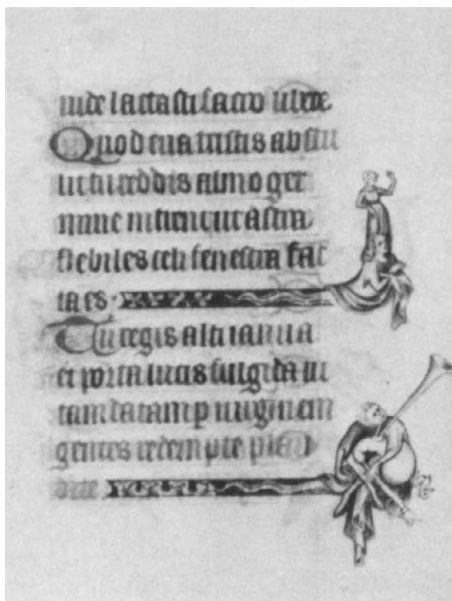 uide lactasti sacro ubere.
Quod eua tristis abstu
lit tu reddis almo ger
mine intrent ut astra
flebiles celi fenestra fac
ta es.
Tu regis alti ianua
et porta lucis fulgida ui
tam datam p uirginem
gentes redempte plau
dite